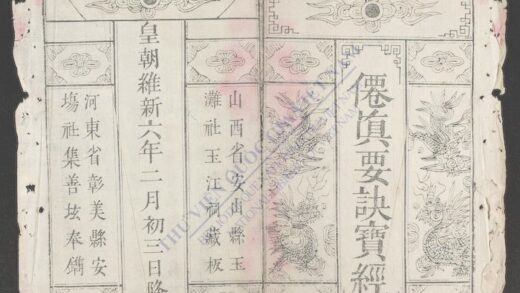 僊眞要訣寶經
山西省安山縣玉
灘社玉江祠藏板
皇朝維新六年二月初三日降
河東省彰美縣安
塲社集善壇奉鐫
THƯ VIỆN QUỐC GIA VIỆT NAM